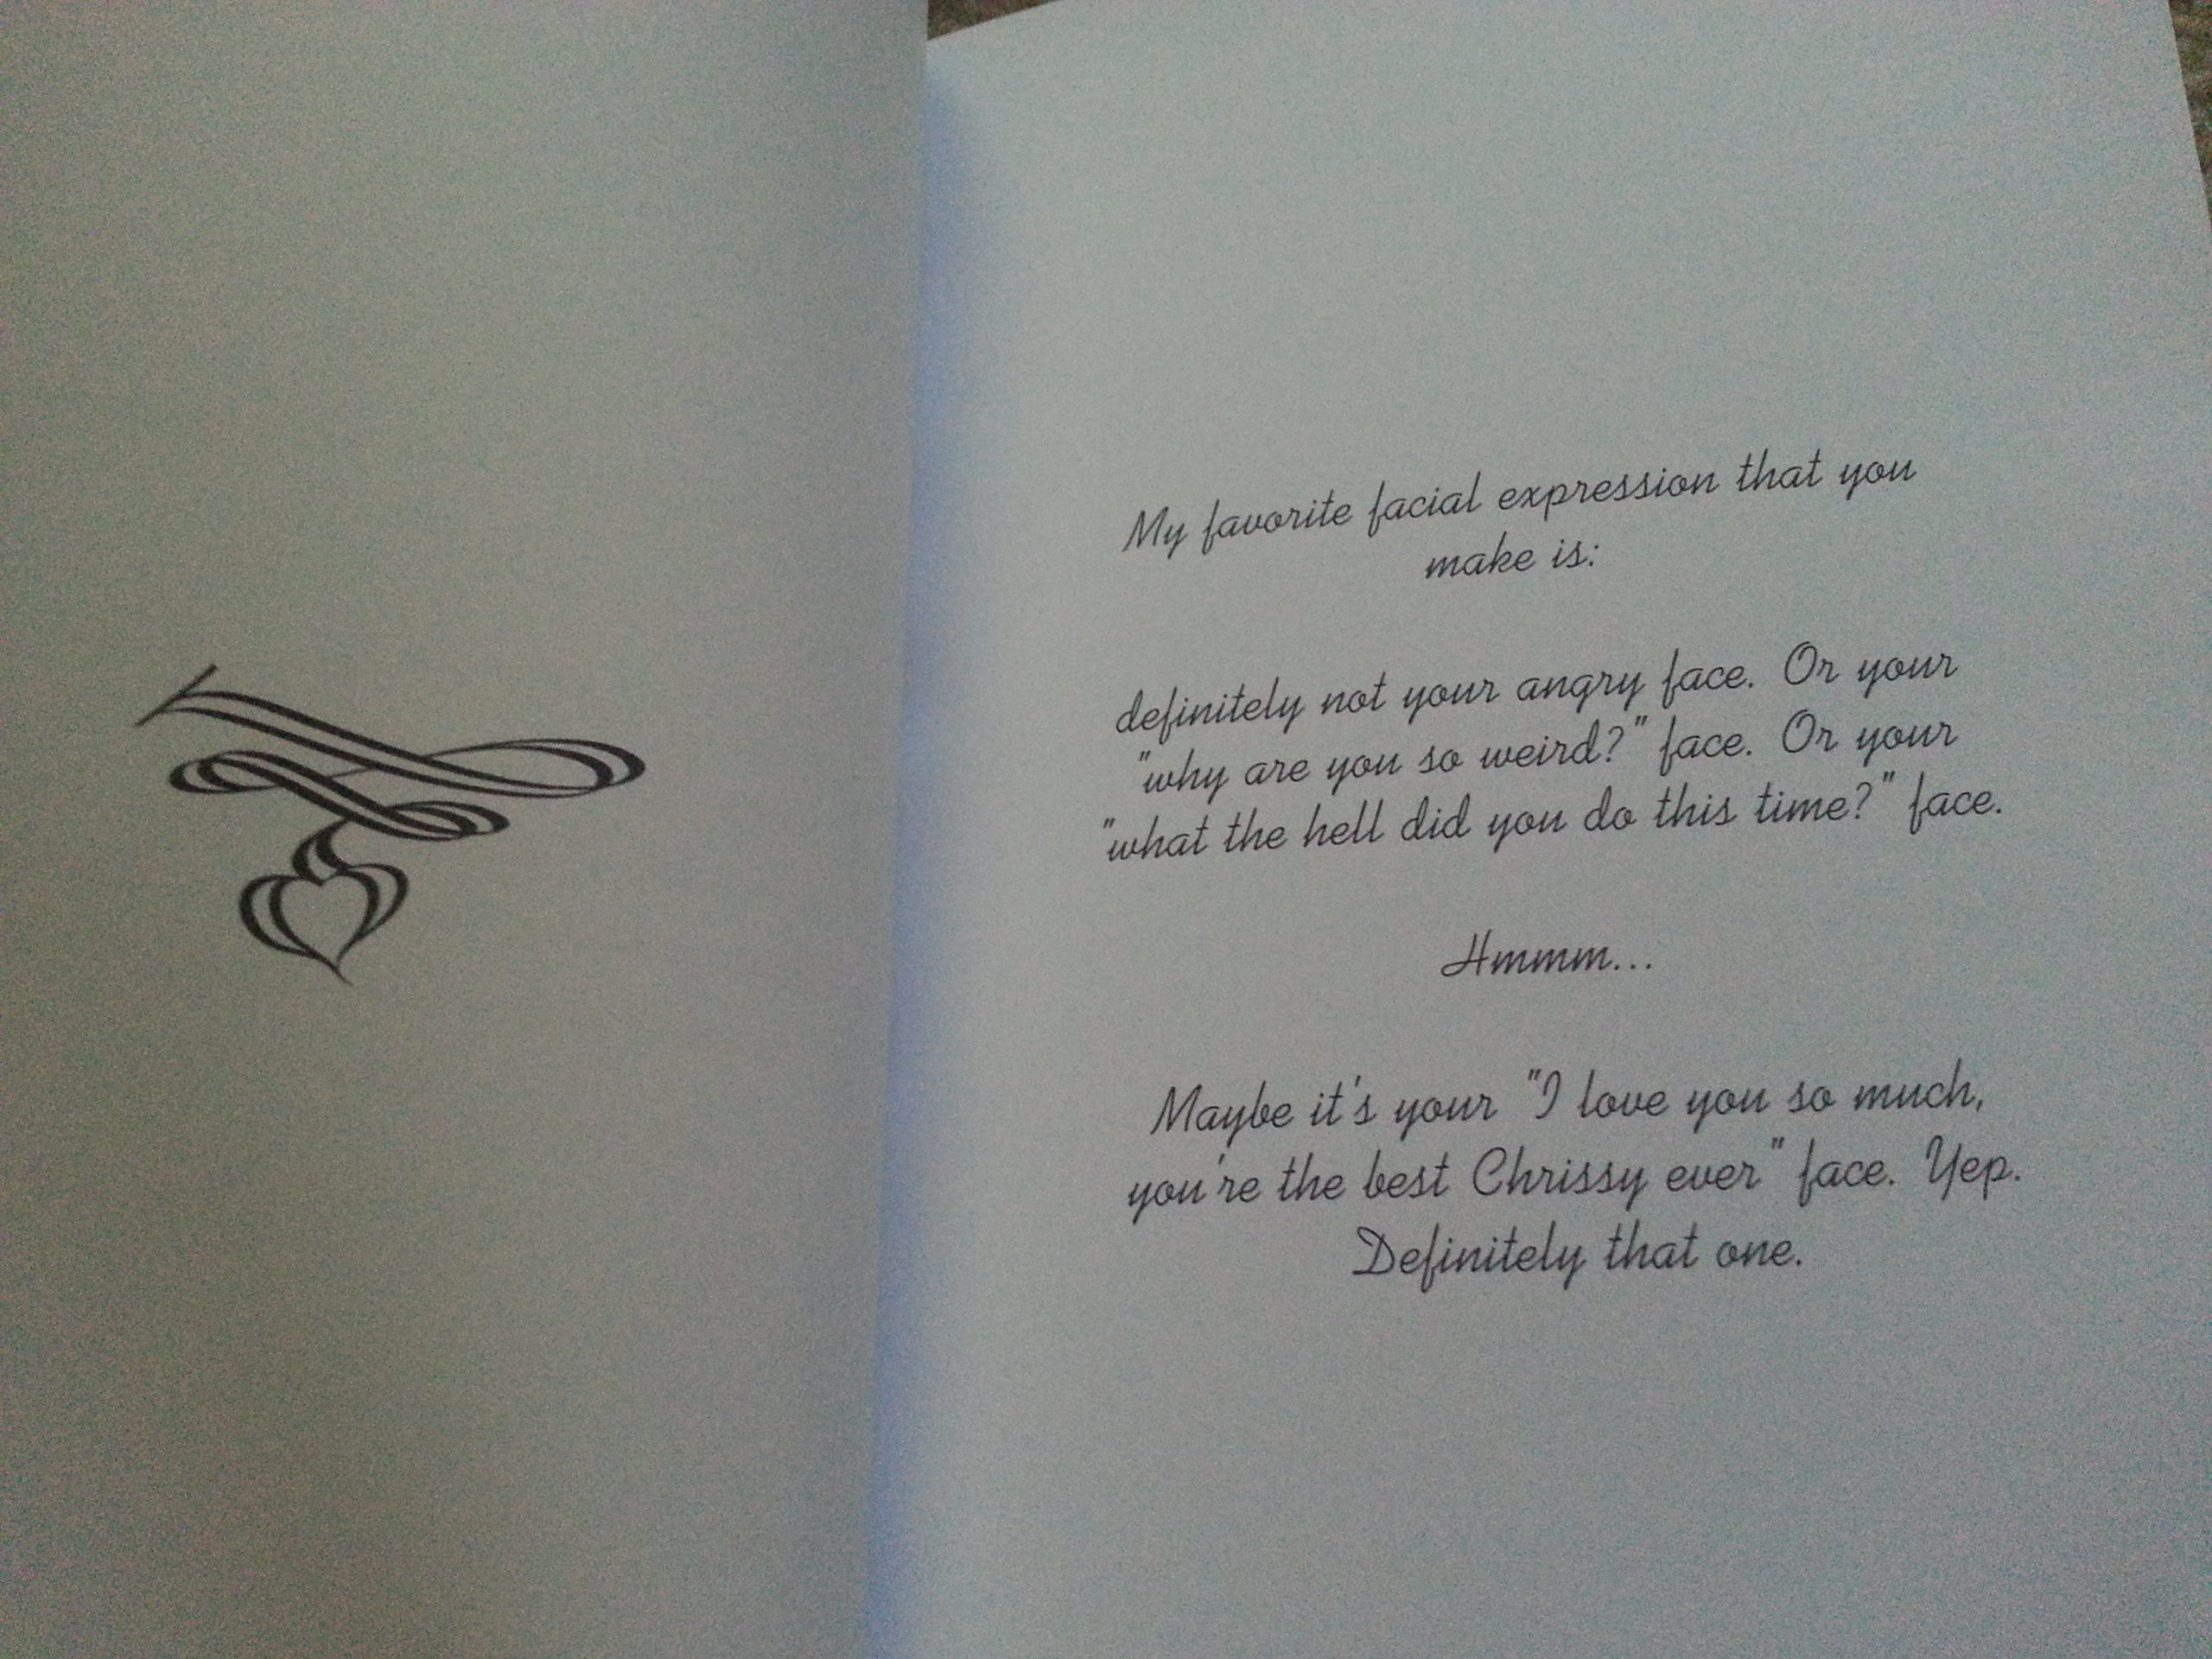 My favorite facial expression that you
make is:
definitely not your angry face. Or your
"why are you so weird?" face. Or your
"what the hell did you do this time?" face.
Hmmm...
Maybe it's your "I love you so much,
you're the best Chrissy ever" face. Yep.
Definitely that one.